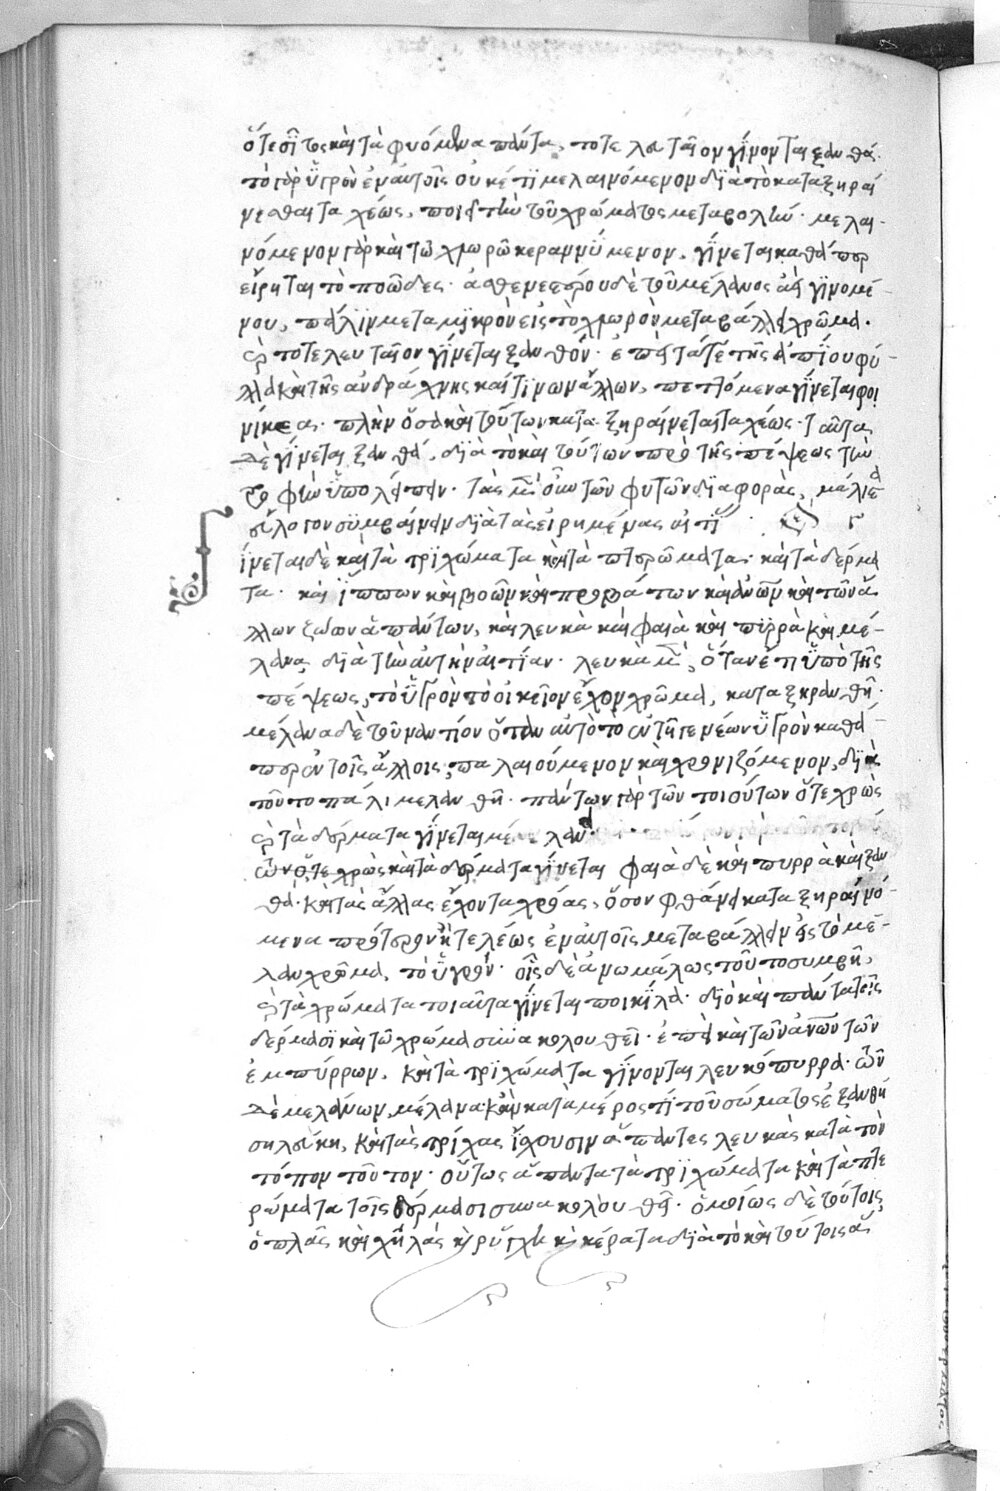 ὅ τε σῖτος καὶ τὰ φυόμενα πάντα, τὸ τελευταῖον γίνονται ξανθά.
τὸ γὰρ ὑγρὸν ἐν αὐτοῖς οὐκέτι μελαινόμενον διὰ τὸ καταξηραί-
νεσθαι ταχέως, ποιεῖ τὴν τοῦ χρώματος μεταβολήν. μελαι-
νόμενον γὰρ καὶ τῷ χλωρῷ κεραννύμενον, γίνεται καθάπερ
εἴρηται τὸ ποῶδες. ἀσθενεστέρου δὲ τοῦ μέλανος ἀεὶ γινομέ-
νου, πάλιν μετὰ μικρὸν εἰς τὸ χλωρὸν μεταβάλλει χρῶμα.
καὶ τὸ τελευταῖον γίνεται ξανθόν. ἐπεὶ τά τε τῆς ἀπίου φύ-
λλα καὶ τῆς ἀνδράχνης καί τινων ἄλλων, πεττόμενα γίνεται φοι
νίκεα. πλὴν ὅσα καὶ τούτων καταξηραίνεται ταχέως. ταῦτα
δὲ γίνεται ξανθά, διὰ τὸ καὶ τούτων πρὸ τῆς πέψεως τὴν
τροφὴν ὑπολείπειν. τὰς μὲν οὖν τῶν φυτῶν διαφοράς, μάλιστα
εὔλογον συμβαίνειν διὰ τὰς εἰρημένας αἰτί
ίνεται δὲ καὶ τὰ τριχώματα καὶ τὰ πτερώματα. καὶ τὰ δέρμα
τα. καὶ ἵππων καὶ βοῶν καὶ προβάτων καὶ ἀνῶν καὶ τῶν ἄ
λλων ζῴων ἁπάντων, καὶ λευκὰ καὶ φαιὰ καὶ πυρρὰ καὶ μέ-
λανα διὰ τὴν αὐτὴν αἰτίαν. λευκὰ μὲν, ὅταν ἔτι ὑπὸ τῆς
πέψεως, τὸ ὑγρὸν τὸ οἰκεῖον ἔχον χρῶμα, καταξηρανθῇ.
μέλανα δὲ τοὐναντίον ὅταν αὐτὸ τὸ ἐν τῇ γενέσει ὑγρὸν καθά-
περ ἐν τοῖς ἄλλοις, παλαιούμενον καὶ χρονιζόμενον, διὰ
τοῦτο πάλι μελανθῇ. πάντων γὰρ τῶν τοιούτων ὅ τε χρὼς
καὶ τὰ δέρματα γίνεται μέλανα
ὧν ὅ τε χρὼς καὶ τὰ δέρματα γίνεται φαιὰ δὲ καὶ πυρρὰ καὶ ξαν
θά. καὶ τὰς ἄλλας ἔχοντα χρόας, ὅσον φθάνει καταξηραινό-
μενα πρότερον ἢ τελέως ἐν αὐτοῖς μεταβάλλειν εἰς τὸ μέ-
λαν χρῶμα, τὸ ὑγρόν. οἷς δὲ ἀνωμάλως τοῦτο συμβῇ,
καὶ τὰ χρώματα τοιαῦτα γίνεται ποικίλα. διὸ καὶ πάντα τοῖς
δέρμασι καὶ τῷ χρώμασι συνακολουθεῖ. ἐπεὶ καὶ τῶν ἀνῶν τῶν
ἐμπύρρων, καὶ τὰ τριχώματα γίνονται λευκόπυρρα. ὧν
δὲ μελάνων, μέλανα κἂν κατὰ μέρος τι τοῦ σώματος ἐξανθή
σῃ λεύκη, καὶ τὰς τρίχας ἴσχουσιν ἅπαντες λευκὰς κατὰ τὸν
τόπον τοῦτον. οὕτως ἅπαντα τὰ τριχώματα καὶ τὰ πτε
ρώματα τοῖς δέρμασι συνακολουθεῖ. ὁμοίως δὲ τούτοις
ὁπλαῖς καὶ χηλὰς καὶ ρύγχη καὶ κέρατα διὰ τὸ καὶ τούτοις ἅ